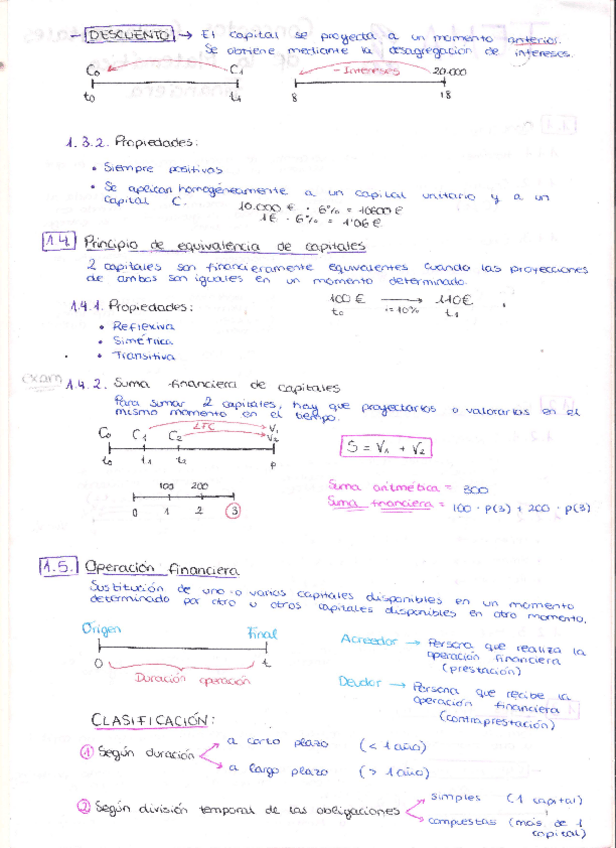 - DESCUENTO → El capital se proyecta a un momento anterior.
Se obtiene mediante la desagregación de intereses.
C₀ C₁ - Intereses 20.000
t₀ t₁ 8 18
1.3.2. Propiedades:
• Siempre positivos
• Se aplican homogéneamente a un capital unitario y a un
capital C. 10.000 € · 6% = 10600 €
1€ · 6% = 1'06 €
1.4. Principio de equivalencia de capitales
2 capitales son financieramente equivalentes cuando las proyecciones
de ambos son iguales en un momento determinado.
1.4.1. Propiedades: 100 € → 110€
t₀ i=10% t₁
• Reflexiva
• Simétrica
• Transitiva
exam 1.4.2. Suma financiera de capitales
Para sumar 2 capitales, hay que proyectarlos o valorarlos en el
mismo momento en el tiempo.
C₀ C₁ C₂ LFC V₁
V₂
t₀ t₁ t₂ P
S = V₁ + V₂
100 200
0 1 2 3
Suma aritmética = 300
Suma financiera = 100 · P(3) + 200 · P(3)
1.5. Operación financiera
Sustitución de uno o varios capitales disponibles en un momento
determinado por otro u otros capitales disponibles en otro momento.
Origen Final
0 t
Duración operación
Acreedor → Persona que realiza la
operación financiera
(prestación)
Deudor → Persona que recibe la
operación financiera
(contraprestación)
CLASIFICACIÓN:
1 Según duración
a corto plazo (< 1 año)
a largo plazo (> 1 año)
2 Según división temporal de las obligaciones
simples (1 capital)
compuestas (más de 1
capital)